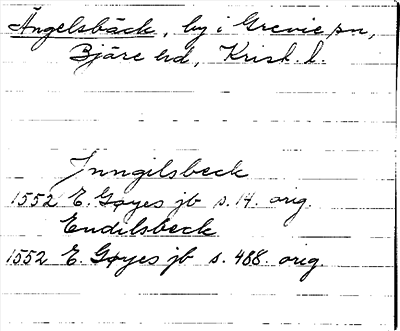 Ängelsbäck, by i Grevie sn,
Bjäre hd, Krist. l.
Jnngilsbeck
1552 E. Gøyes jb s. 14. orig.
Endilsbeck
1552 E. Gøyes jb s. 488. orig.